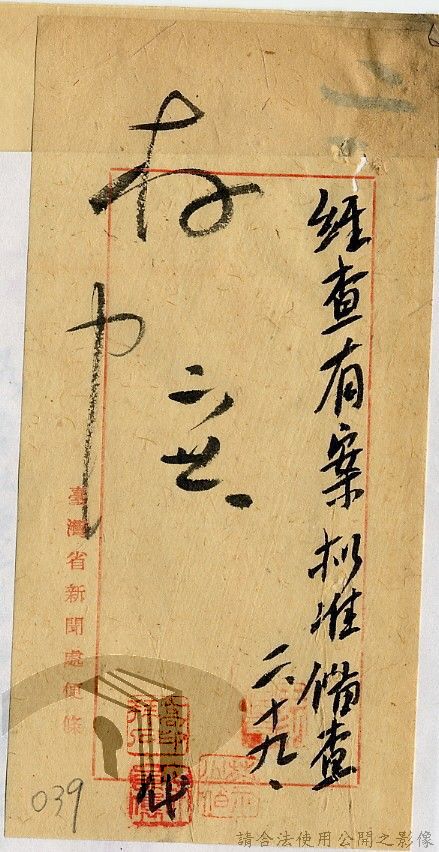 經查有案擬准備查
二、十九、
存
二、廿、
代
臺灣省新聞處便條
039
請合法使用公開之影像